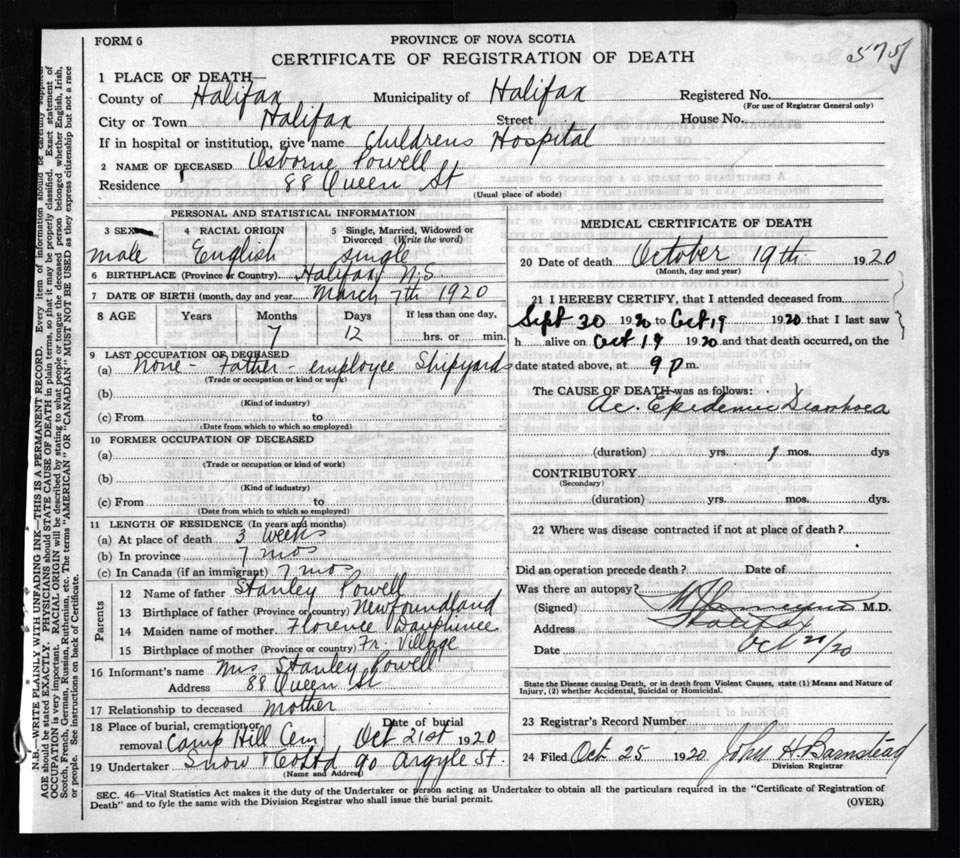 FORM 6
PROVINCE OF NOVA SCOTIA
5751
CERTIFICATE OF REGISTRATION OF DEATH
1 PLACE OF DEATH—
County of Halifax Municipality of Halifax Registered No.
(For use of Registrar General only)
City or Town Halifax Street House No.
If in hospital or institution, give name Childrens Hospital
2 NAME OF DECEASED Osborne Powell
Residence 88 Queen St
(Usual place of abode)
PERSONAL AND STATISTICAL INFORMATION
3 SEX 4 RACIAL ORIGIN 5 Single, Married, Widowed or
Divorced (Write the word)
male English single
6 BIRTHPLACE (Province or Country). Halifax N.S.
7 DATE OF BIRTH (month, day and year March 7th 1920
8 AGE Years Months Days If less than one day,
7 12 hrs. or min.
9 LAST OCCUPATION OF DECEASED
(a) None - Father - employee Shipyards
(Trade or occupation or kind or work)
(b)
(Kind of industry)
(c) From to
(Date from which to which so employed)
10 FORMER OCCUPATION OF DECEASED
(a)
(Trade or occupation or kind of work)
(b)
(Kind of industry)
(c) From to
(Date from which to which so employed)
11 LENGTH OF RESIDENCE (In years and months)
(a) At place of death 3 weeks
(b) In province 7 mos
(c) In Canada (if an immigrant) 7 mos
Parents
12 Name of father Stanley Powell
13 Birthplace of father (Province or country) Newfoundland
14 Maiden name of mother. Florence Dauphinee
15 Birthplace of mother (Province or country) Fr. Village
16 Informant's name Mrs Stanley Powell
Address 88 Queen St
17 Relationship to deceased mother
18 Place of burial, cremation or Date of burial
removal Camp Hill Cem Oct 21st 1920
19 Undertaker Snow & Co Ltd 90 Argyle St.
(Name and Address)
MEDICAL CERTIFICATE OF DEATH
20 Date of death October 19th 1920
(Month, day and year)
21 I HEREBY CERTIFY, that I attended deceased from
Sept 30 1920 to Oct 19 1920 that I last saw
h alive on Oct 19 1920 and that death occurred, on the
date stated above, at 9 p m.
The CAUSE OF DEATH was as follows:
Ac. Epidemic Diarrhoea
(duration) yrs. 1 mos. dys
CONTRIBUTORY
(Secondary)
(duration) yrs. mos. dys.
22 Where was disease contracted if not at place of death?
Did an operation precede death? Date of
Was there an autopsy?
(Signed) M.D.
Address Halifax
Date Oct 21/20
State the Disease causing Death, or in death from Violent Causes, state (1) Means and Nature of
Injury, (2) whether Accidental, Suicidal or Homicidal.
23 Registrar's Record Number
24 Filed Oct 25 1920 John H Barnstead
Division Registrar
SEC. 46—Vital Statistics Act makes it the duty of the Undertaker or person acting as Undertaker to obtain all the particulars required in the "Certificate of Registration of
Death" and to fyle the same with the Division Registrar who shall issue the burial permit.
(OVER)
N.B.—WRITE PLAINLY WITH UNFADING INK—THIS IS A PERMANENT RECORD. Every item of information should be carefully supplied.
AGE should be stated EXACTLY. PHYSICIANS should STATE CAUSE OF DEATH in plain terms, so that it may be properly classified. Exact statement of
OCCUPATION is very important. RACIAL ORIGIN will be described by stating to what people or tongue the deceased person belonged whether English, Irish,
Scotch, French, German, Russian, Ruthenian, etc. The terms "AMERICAN" OR "CANADIAN" MUST NOT BE USED as they express citizenship but not a race
or people. See instructions on back of Certificate.